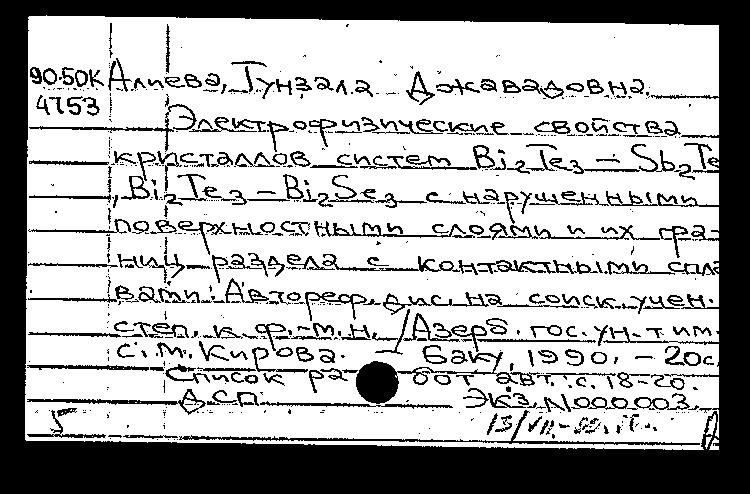 90.50К Алиева, Гунзала Джавадовна.
4753
Электрофизические свойства
кристаллов систем Bi2Te3 – Sb2Te
, Bi2Te3 – Bi2Se3 с нарушенными
поверхностными слоями и их гра-
ниц раздела с контактными спла
вами: Автореф. дис. на соиск. учен.
степ. к. ф.-м. н. / Азерб. гос. ун-т им.
С. М. Кирова. – Баку, 1990. – 20с
Список работ авт.: с. 18-20.
ДСП. Экз. N000003.
5